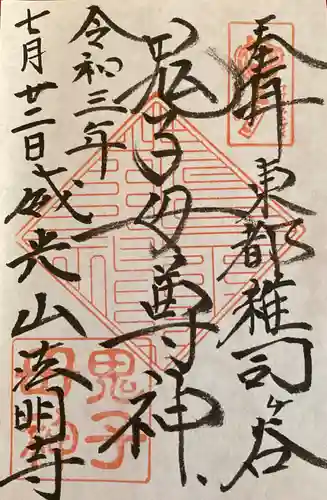 奉拝
東都雜司ヶ谷
鬼子母尊神
令和三年
七月廿二日
威光山法明寺
鬼子